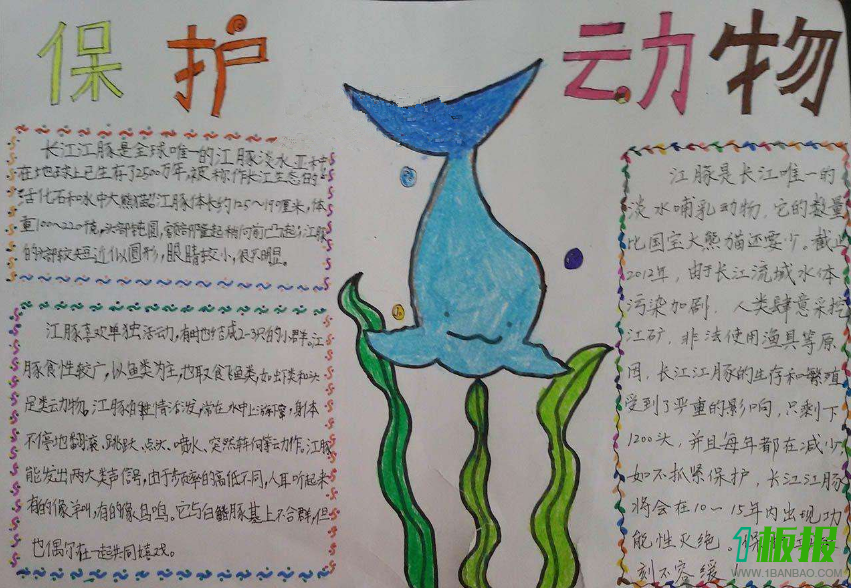 保护动物
长江江豚是全球唯一的江豚淡水亚种
在地球上已生存了2500万年,被称作长江生态的
活化石和水中大熊猫江豚体长约120~190厘米,体
重100~220千克,头部钝圆,额部隆起稍向前凸起;江豚
的头部较短近似圆形,眼睛较小,很不明显。
江豚喜欢单独活动,有时也结成2-3只的小群。江
豚食性较广,以鱼类为主,也取食鱼类,如虾类和头
足类动物。江豚的性情活泼,常在水中上游下窜,身体
不停地翻滚、跳跃、点头、喷水、突然转向等动作。江豚
能发出两大类声信号,由于频率的高低不同,人耳听起来
有的像羊叫,有的像鸟鸣。它与白鳍豚基上不合群,但
也偶尔在一起共同嬉戏。
江豚是长江唯一的
淡水哺乳动物,它的数量
比国宝大熊猫还要少。截止
2012年,由于长江流域水体
污染加剧,人类肆意采挖
江矿,非法使用渔具等原
因,长江江豚的生存和繁殖
受到了严重的影响,只剩下
1200头,并且每年都在减少
如不抓紧保护,长江江豚
将会在10~15年内出现功
能性灭绝。保护江豚
刻不容缓
1板报
WWW.1BANBAO.COM